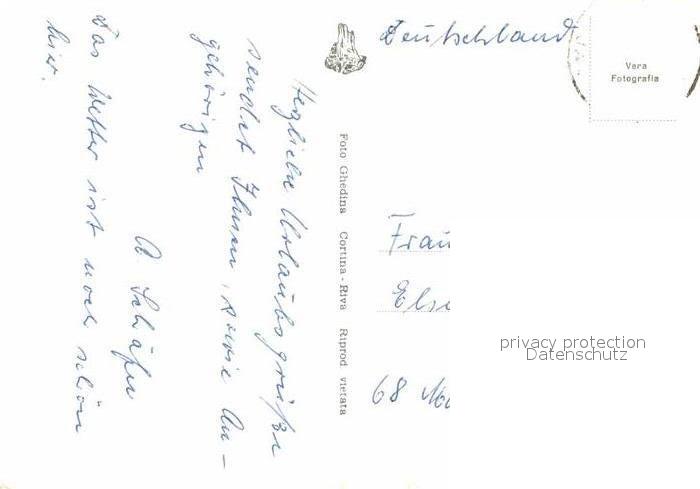 Herzliche Urlaubsgrüße
sendet Ihnen, sowie An-
gehörigen
A Schäfer
Das Wetter ist noch schön
hier.
Foto Ghedina Cortina - Riva Riprod vietata
Deutschland
Vera
Fotografia
Frau
Else
68
privacy protection
Datenschutz